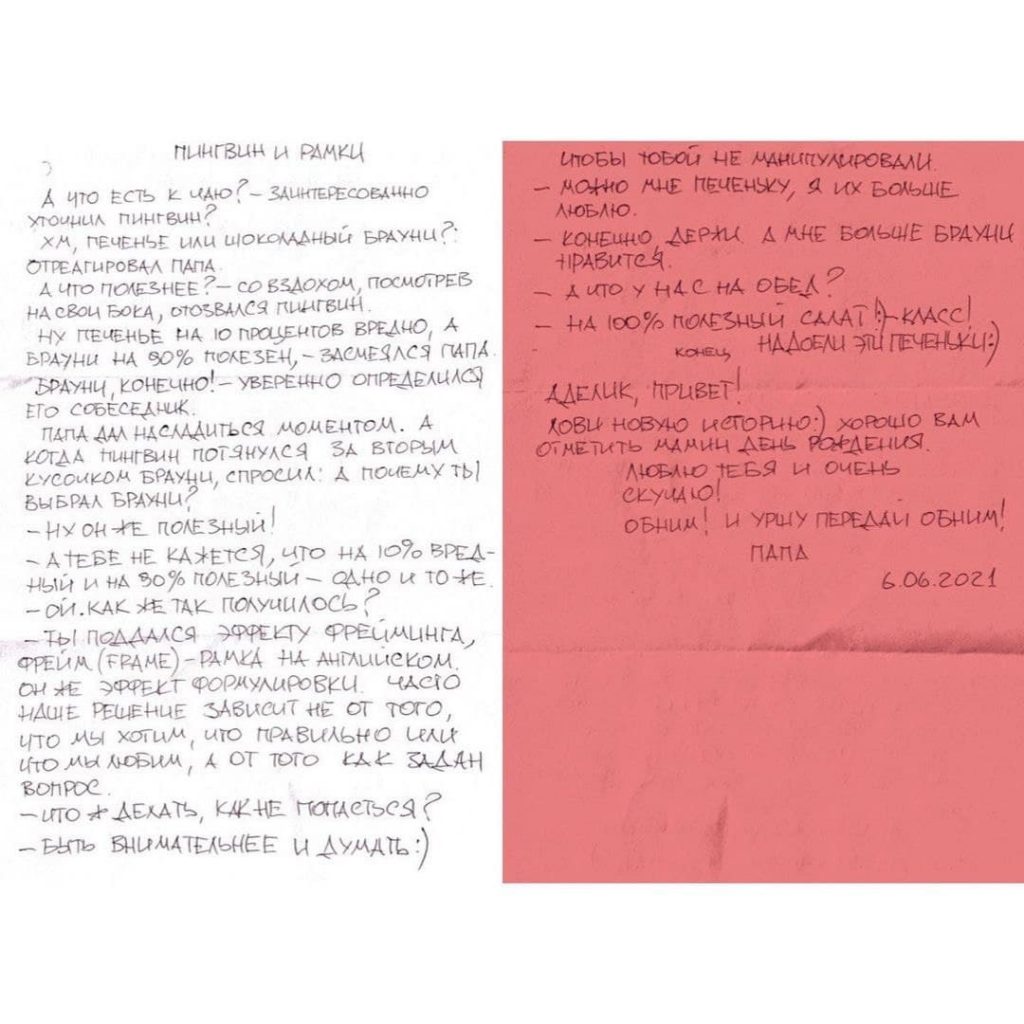 ПИНГВИН И РАМКИ
А ЧТО ЕСТЬ К ЧАЮ? – ЗАИНТЕРЕСОВАННО
УТОЧНИЛ ПИНГВИН?
ХМ, ПЕЧЕНЬЕ ИЛИ ШОКОЛАДНЫЙ БРАУНИ?:
ОТРЕАГИРОВАЛ ПАПА.
А ЧТО ПОЛЕЗНЕЕ? – СО ВЗДОХОМ, ПОСМОТРЕВ
НА СВОИ БОКА, ОТОЗВАЛСЯ ПИНГВИН.
НУ ПЕЧЕНЬЕ НА 10 ПРОЦЕНТОВ ВРЕДНО, А
БРАУНИ НА 90% ПОЛЕЗЕН, – ЗАСМЕЯЛСЯ ПАПА.
БРАУНИ, КОНЕЧНО! – УВЕРЕННО ОПРЕДЕЛИЛСЯ
ЕГО СОБЕСЕДНИК.
ПАПА ДАЛ НАСЛАДИТЬСЯ МОМЕНТОМ. А
КОГДА ПИНГВИН ПОТЯНУЛСЯ ЗА ВТОРЫМ
КУСОЧКОМ БРАУНИ, СПРОСИЛ: А ПОЧЕМУ ТЫ
ВЫБРАЛ БРАУНИ?
– НУ ОН ЖЕ ПОЛЕЗНЫЙ!
– А ТЕБЕ НЕ КАЖЕТСЯ, ЧТО НА 10% ВРЕД-
НЫЙ И НА 90% ПОЛЕЗНЫЙ – ОДНО И ТО ЖЕ.
– ОЙ. КАК ЖЕ ТАК ПОЛУЧИЛОСЬ?
– ТЫ ПОДДАЛСЯ ЭФФЕКТУ ФРЕЙМИНГА,
ФРЕЙМ (FRAME) – РАМКА НА АНГЛИЙСКОМ.
ОН ЖЕ ЭФФЕКТ ФОРМУЛИРОВКИ. ЧАСТО
НАШЕ РЕШЕНИЕ ЗАВИСИТ НЕ ОТ ТОГО,
ЧТО МЫ ХОТИМ, ЧТО ПРАВИЛЬНО ИЛИ
ЧТО МЫ ЛЮБИМ, А ОТ ТОГО КАК ЗАДАН
ВОПРОС.
– ЧТО Ж ДЕЛАТЬ, КАК НЕ ПОПАСТЬСЯ?
– БЫТЬ ВНИМАТЕЛЬНЕЕ И ДУМАТЬ :)
ЧТОБЫ ТОБОЙ НЕ МАНИПУЛИРОВАЛИ.
– МОЖНО МНЕ ПЕЧЕНЬКУ, Я ИХ БОЛЬШЕ
ЛЮБЛЮ.
– КОНЕЧНО, ДЕРЖИ. А МНЕ БОЛЬШЕ БРАУНИ
НРАВИТСЯ.
– А ЧТО У НАС НА ОБЕД?
– НА 100% ПОЛЕЗНЫЙ САЛАТ :) – КЛАСС!
НАДОЕЛИ ЭТИ ПЕЧЕНЬКИ :)
КОНЕЦ
АДЕЛИК, ПРИВЕТ!
ЛОВИ НОВУЮ ИСТОРИЮ :) ХОРОШО ВАМ
ОТМЕТИТЬ МАМИН ДЕНЬ РОЖДЕНИЯ.
ЛЮБЛЮ ТЕБЯ И ОЧЕНЬ
СКУЧАЮ!
ОБНИМ! И УРШУ ПЕРЕДАЙ ОБНИМ!
ПАПА
6.06.2021